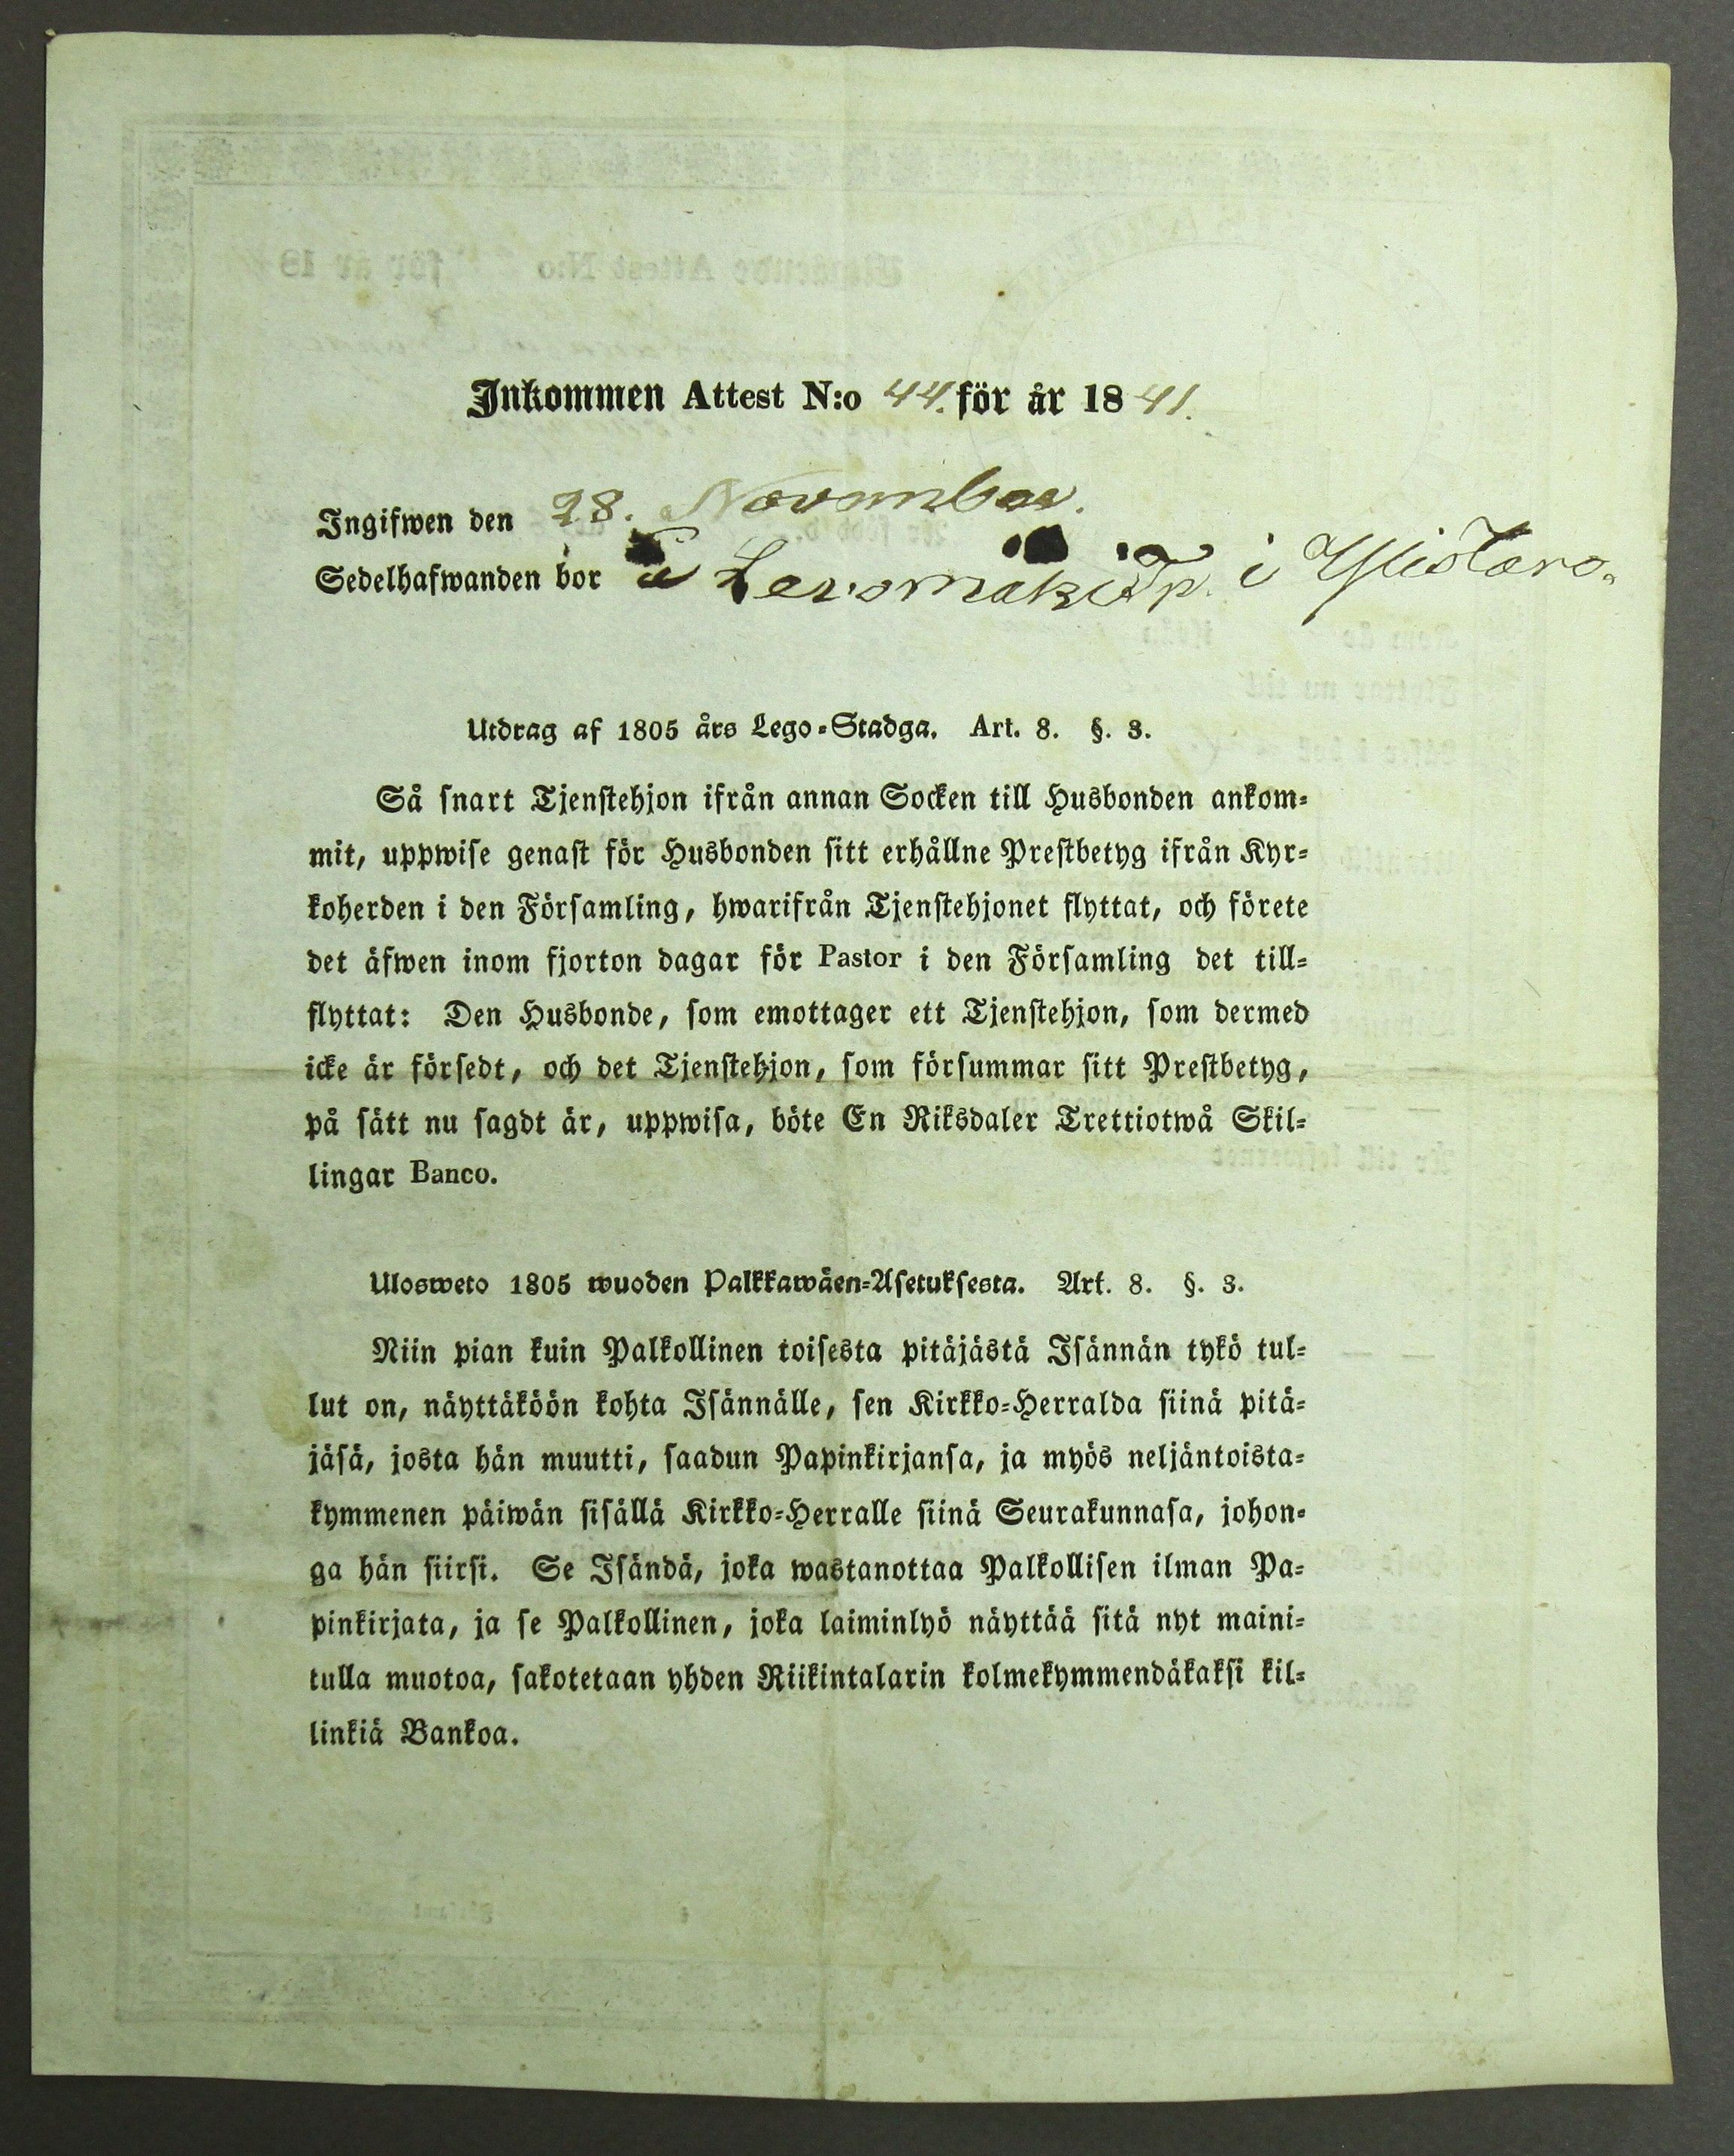 Inkommen Attest N:o 44. för år 1841.
Ingifwen den 28. November.
Sedelhafwanden bor i Ylistaro.
Utdrag af 1805 års Lego-Stadga. Art. 8. §. 3.
Så snart Tjenstehjon ifrån annan Socken till Husbonden ankom-
mit, uppwise genast för Husbonden sitt erhållne Prestbetyg ifrån Kyr-
koherden i den Församling, hwarifrån Tjenstehjonet flyttat, och förete
det äfwen inom fjorton dagar för Pastor i den Församling det till-
flyttat: Den Husbonde, som emottager ett Tjenstehjon, som dermed
icke är försedt, och det Tjenstehjon, som försummar sitt Prestbetyg,
på sätt nu sagdt är, uppwisa, böte En Riksdaler Trettiotwå Skil-
lingar Banco.
Ulosweto 1805 wuoden Palkkawäen-Asetuksesta. Art. 8. §. 3.
Niin pian kuin Palkollinen toisesta pitäjästä Isännän tykö tul-
lut on, näyttäköön kohta Isännälle, sen Kirkko-Herralda siinä pitä-
jäsä, josta hän muutti, saadun Papinkirjansa, ja myös neljäntoista-
kymmenen päiwän sisällä Kirkko-Herralle siinä Seurakunnasa, johon-
ga hän siirsi. Se Isändä, joka wastanottaa Palkollisen ilman Pa-
pinkirjata, ja se Palkollinen, joka laiminlyö näyttää sitä nyt maini-
tulla muotoa, sakotetaan yhden Riikintalarin kolmekymmendäkaksi kil-
linkiä Bankoa.